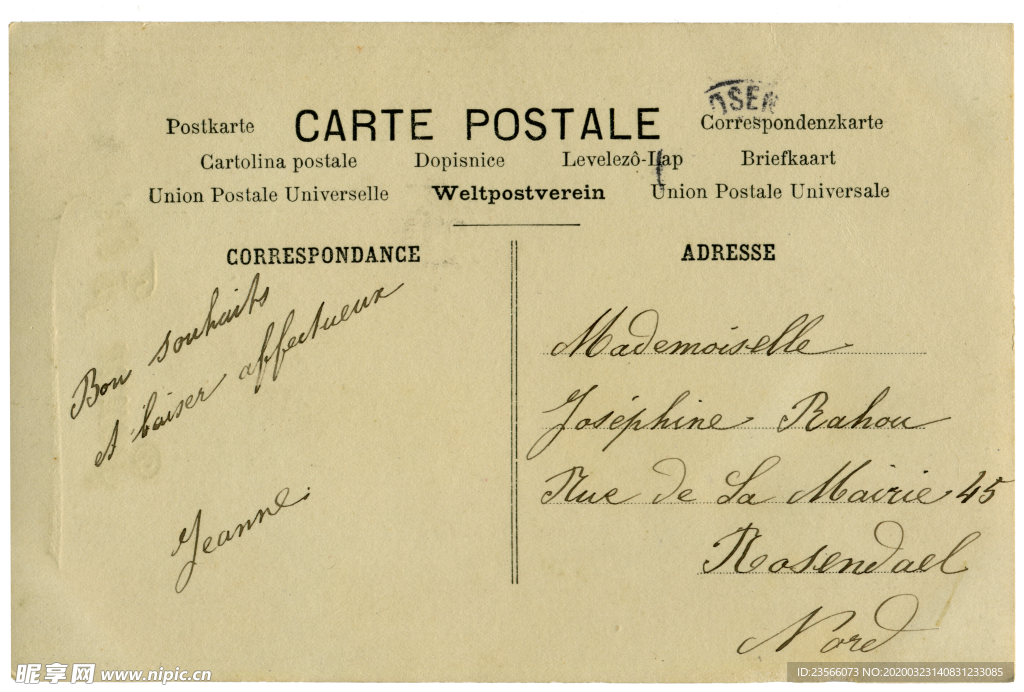 OSEN
Postkarte CARTE POSTALE Correspondenzkarte
Cartolina postale Dopisnice Levelezô-Lap Briefkaart
Union Postale Universelle Weltpostverein Union Postale Universale
CORRESPONDANCE
Bon souhaits
et baiser affectueux
Jeanne
ADRESSE
Mademoiselle
Joséphine Rahou
Rue de La Mairie 45
Rosendael
Nord
昵享网 www.nipic.cn
ID:23566073 NO:20200323140831233085